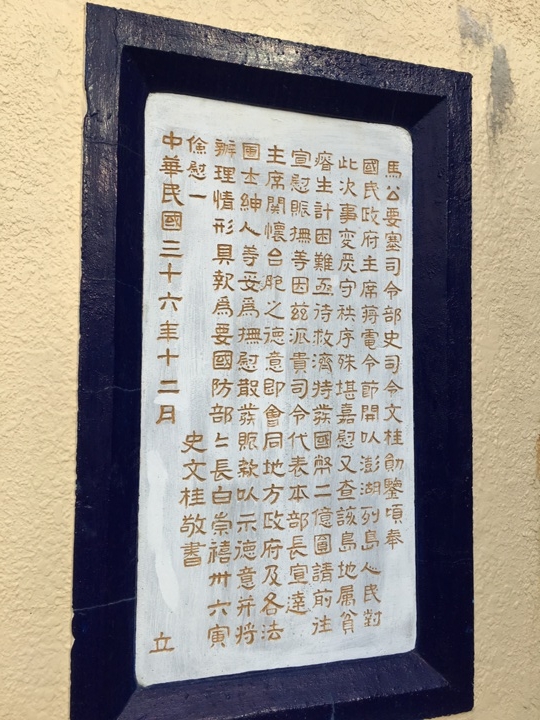 馬公要塞司令部史司令文桂勛鑒頃奉
國民政府主席蔣電令節開以澎湖列島人民對
此次事変庪守秩序殊堪嘉慰又查該島地属貧
瘠生計困難亟待救濟特發國幣二億圓請前往
宣慰賑撫等因茲派貴司令代表本部長宣達
主席關懷台胞之德意即會同地方政府及各法
團士紳人等妥為撫慰散發賑款以示德意并將
辦理情形具報為要國防部部長白崇禧卅六寅
儉慰一
史文桂敬書
中華民國三十六年十二月 立